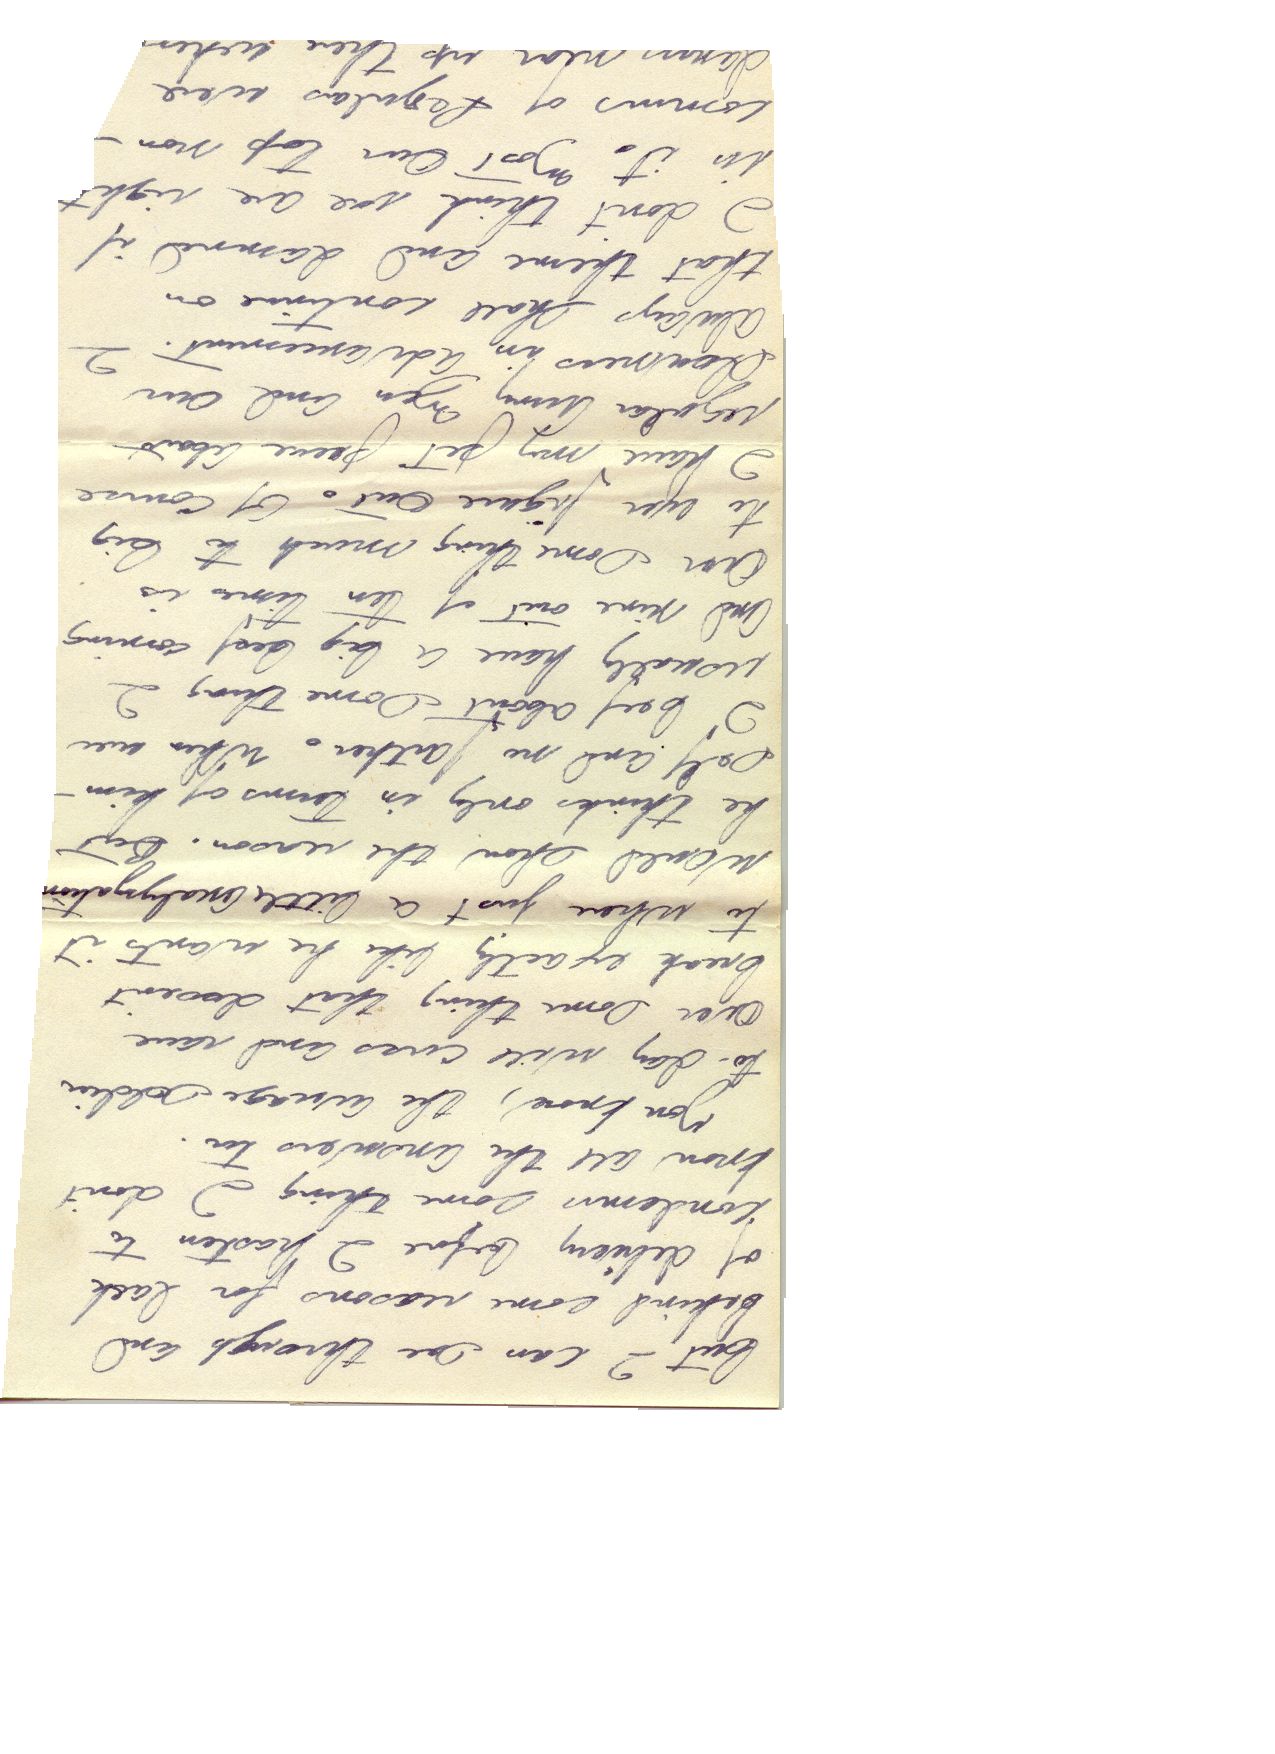 But I can see through and
behind some reasons for lack
of delivery before I hasten to
condemn some thing I don't
know all the answers to.
You know, the average soldier
to-day will cuss and rave
over some thing that doesn't
break exactly like he wants it
to when just a little analyzation
would show the reason. But
he thinks only in terms of him-
self and no father. When ever
I beef about some thing I
usually have a big beef coming
and nine out of ten times is
over something much to big
to ever figure out. Of course
I have my pet peeve about
regular Army Men and our
slowness in advancement. I
always shall continue on
that theme and damned if
I don't think we are right
in it. Most our top non-
comms of Regulars were
damn near up there when